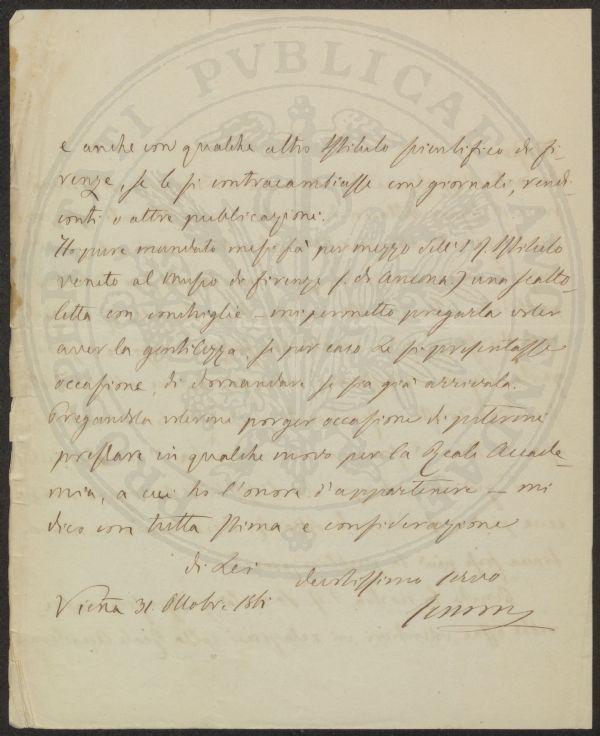 e anche con qualche altro Istituto scientifico di fi-
renze, se le si contracambiasse con giornali, rendi
conti o altre publicazioni.
Ho pure mandato mesi fà per mezzo dell' I. R. Istituto
veneto al Museo di firenze (S. di Ancona) una scatto-
letta con conchiglie – mi permetto pregarla voler
aver la gentilezza, se per caso Le si presentasse
occasione, di domandare se sia già arrivata.
Pregandola volermi porger occasione di potermi
prestare in qualche modo per la Reale Accade-
mia, a cui ho l'onore d'appartenere – mi
dico con tutta stima e considerazione
di Lei
devotissimo servo
Vienna 31. Ottobre 1861